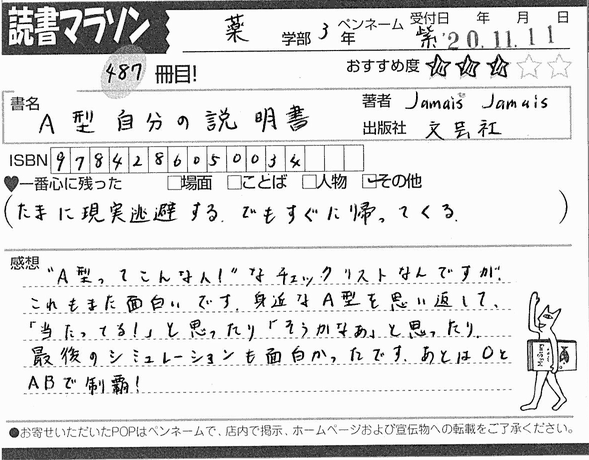 読書マラソン
薬 学部 3 年 ペンネーム 紫 受付日 年 月 日 '20.11.11
487 冊目! おすすめ度 ★★★☆☆
書名 A型自分の説明書
著者 Jamais Jamais
出版社 文芸社
ISBN 9784286050034
♥一番心に残った □場面 □ことば □人物 ☑その他
(たまに現実逃避する。でもすぐに帰ってくる。)
感想
"A型ってこんな人!"なチェックリストなんですが、
これもまた面白いです。身近なA型を思い返して、
「当たってる!」と思ったり「そうかなぁ」と思ったり。
最後のシミュレーションも面白かったです。あとはOと
ABで制覇!
●お寄せいただいたPOPはペンネームで、店内で掲示、ホームページおよび宣伝物への転載をご了承ください。